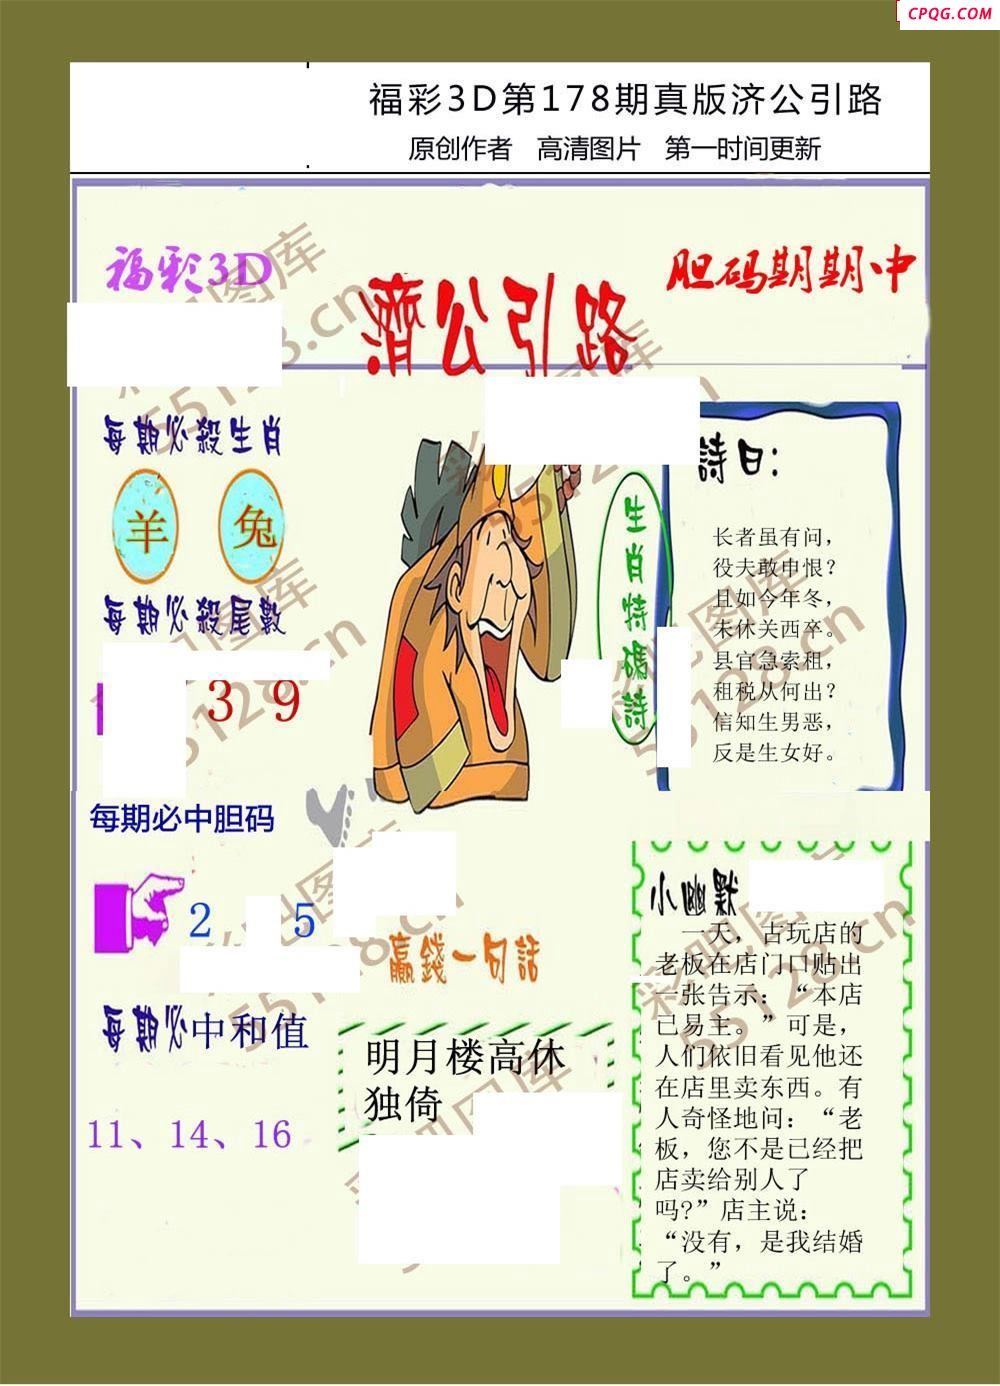 CPQG.COM
福彩3D第178期真版济公引路
原创作者 高清图片 第一时间更新
福彩3D
濟公引路
胆码期期中
每期必殺生肖
羊 兔
每期必殺尾數
3 9
每期必中胆码
2 5
每期必中和值
11、14、16
生肖特碼詩
詩曰:
长者虽有问，
役夫敢申恨？
且如今年冬，
未休关西卒。
县官急索租，
租税从何出？
信知生男恶，
反是生女好。
赢錢一句話
明月楼高休
独倚
小幽默
一天，古玩店的
老板在店门口贴出
一张告示：“本店
已易主。”可是，
人们依旧看见他还
在店里卖东西。有
人奇怪地问：“老
板，您不是已经把
店卖给别人了
吗?”店主说：
“没有，是我结婚
了。”
彩吧图库
55128.cn
彩吧图库
55128.cn
彩吧图库
55128.cn
彩吧图库
55128.cn